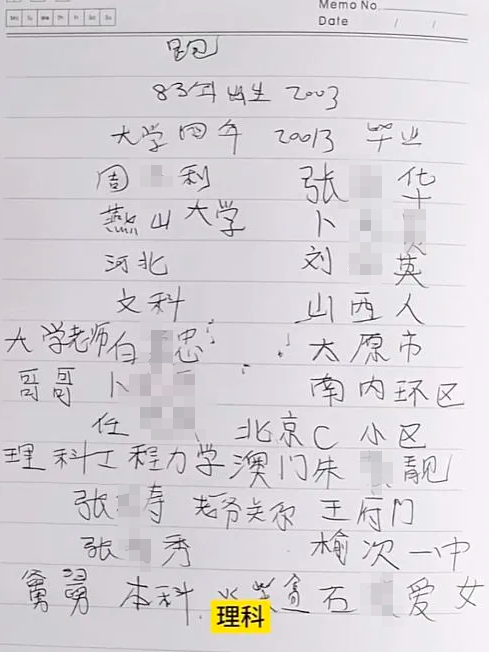 Memo No.
Date / /
跑
83年出生 2003
大学四年 20013 毕业
周 利 张 华
燕山大学 卜
河北 刘 英
文科 山西人
大学老师白 忠 太原市
哥哥 卜 南内环区
任 北京C小区
理科工程力学 澳门朱 靓
张 寿 老爷关系 王府门
张 秀 榆次一中
舅舅 本科 石 爱女
理科